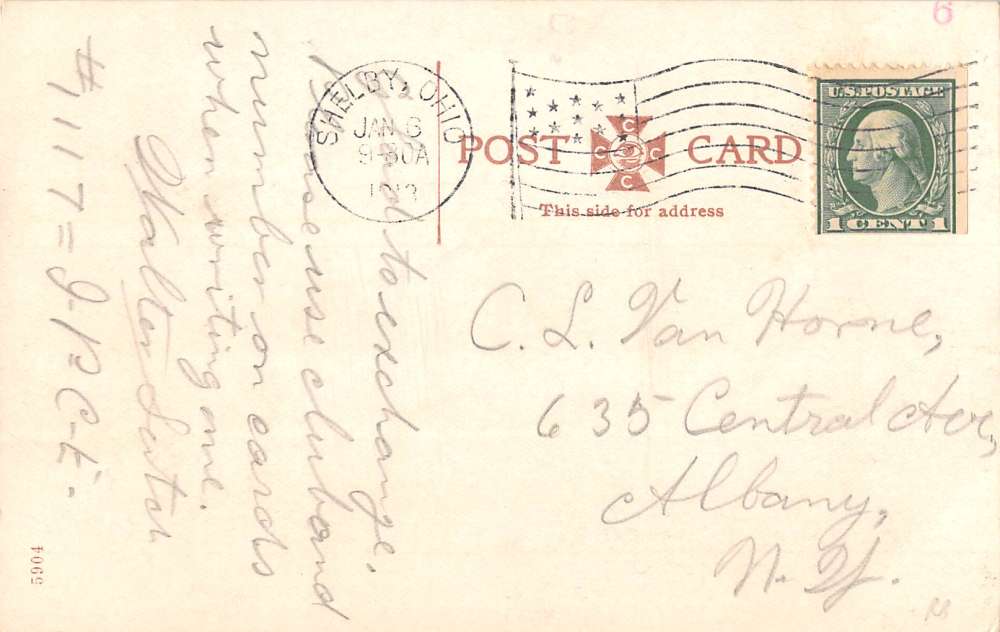 6
SHELBY, OHIO
JAN 6
9-30A
1913
POST CARD
C C C C
This side for address
U.S. POSTAGE
1 CENT 1
Glad to exchange,
Please use club and
number on cards
when writing me.
Walter
#1117 = J.P.C.E.
C. L. Van Horne,
635 Central Ave,
Albany,
N. Y.
5904